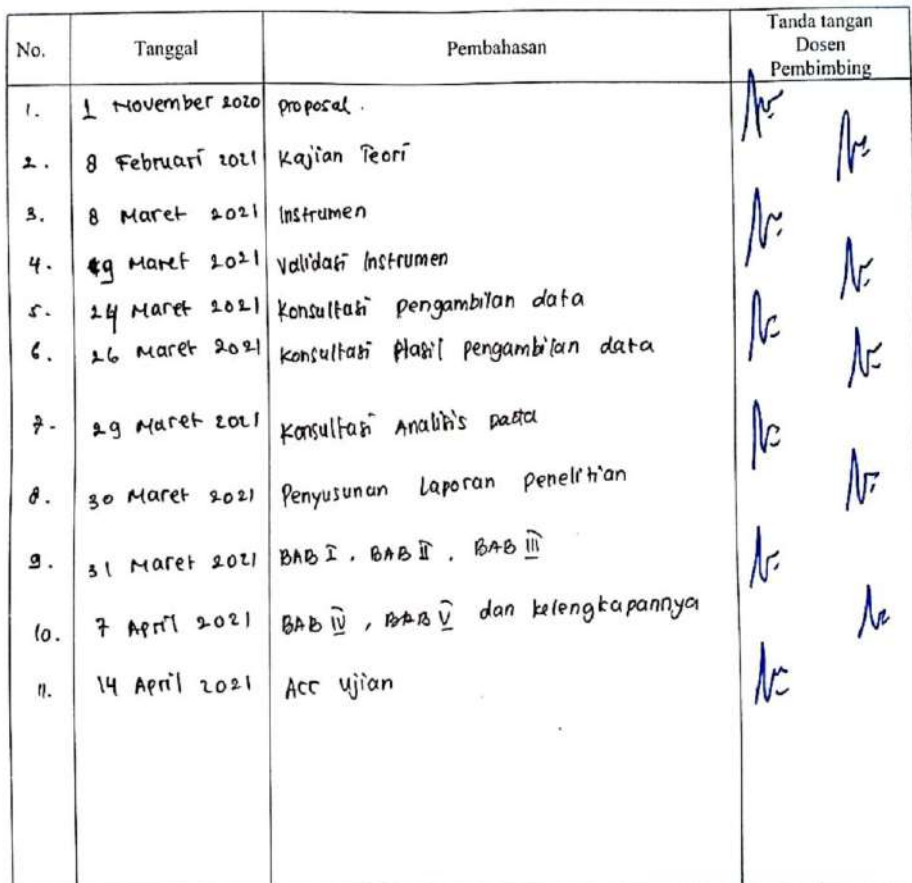 No. Tanggal Pembahasan Tanda tangan
Dosen
Pembimbing
1. 1 November 2020 proposal.
2. 8 Februari 2021 Kajian Teori
3. 8 Maret 2021 Instrumen
4. 9 Maret 2021 Validasi Instrumen
5. 24 Maret 2021 Konsultasi pengambilan data
6. 26 Maret 2021 Konsultasi Hasil pengambilan data
7. 29 Maret 2021 Konsultasi Analisis Data
8. 30 Maret 2021 Penyusunan Laporan penelitian
9. 31 Maret 2021 BAB I, BAB II, BAB III
10. 7 April 2021 BAB IV, BAB V dan kelengkapannya
11. 14 April 2021 Acc Ujian